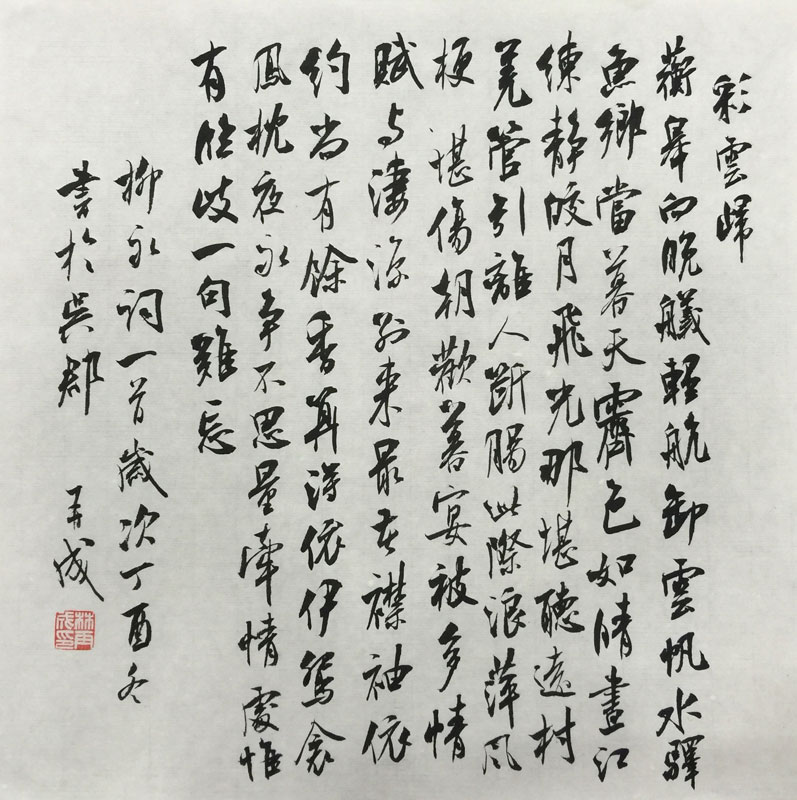 彩雲歸
蘅皋向晚艤輕航卸雲帆水驛
魚鄉當暮天霽色如晴晝江
練靜皎月飛光那堪聽遠村
羌管引離人斷腸此際浪萍風
梗 堪傷朝歡暮宴被多情
賦与淒涼別來最苦襟袖依
約尚有餘香算得依伊鴛衾
鳳枕夜永爭不思量牽情處惟
有臨歧一句難忘
柳永詞一首歲次丁酉冬
書於吳郡 再成
林再成印